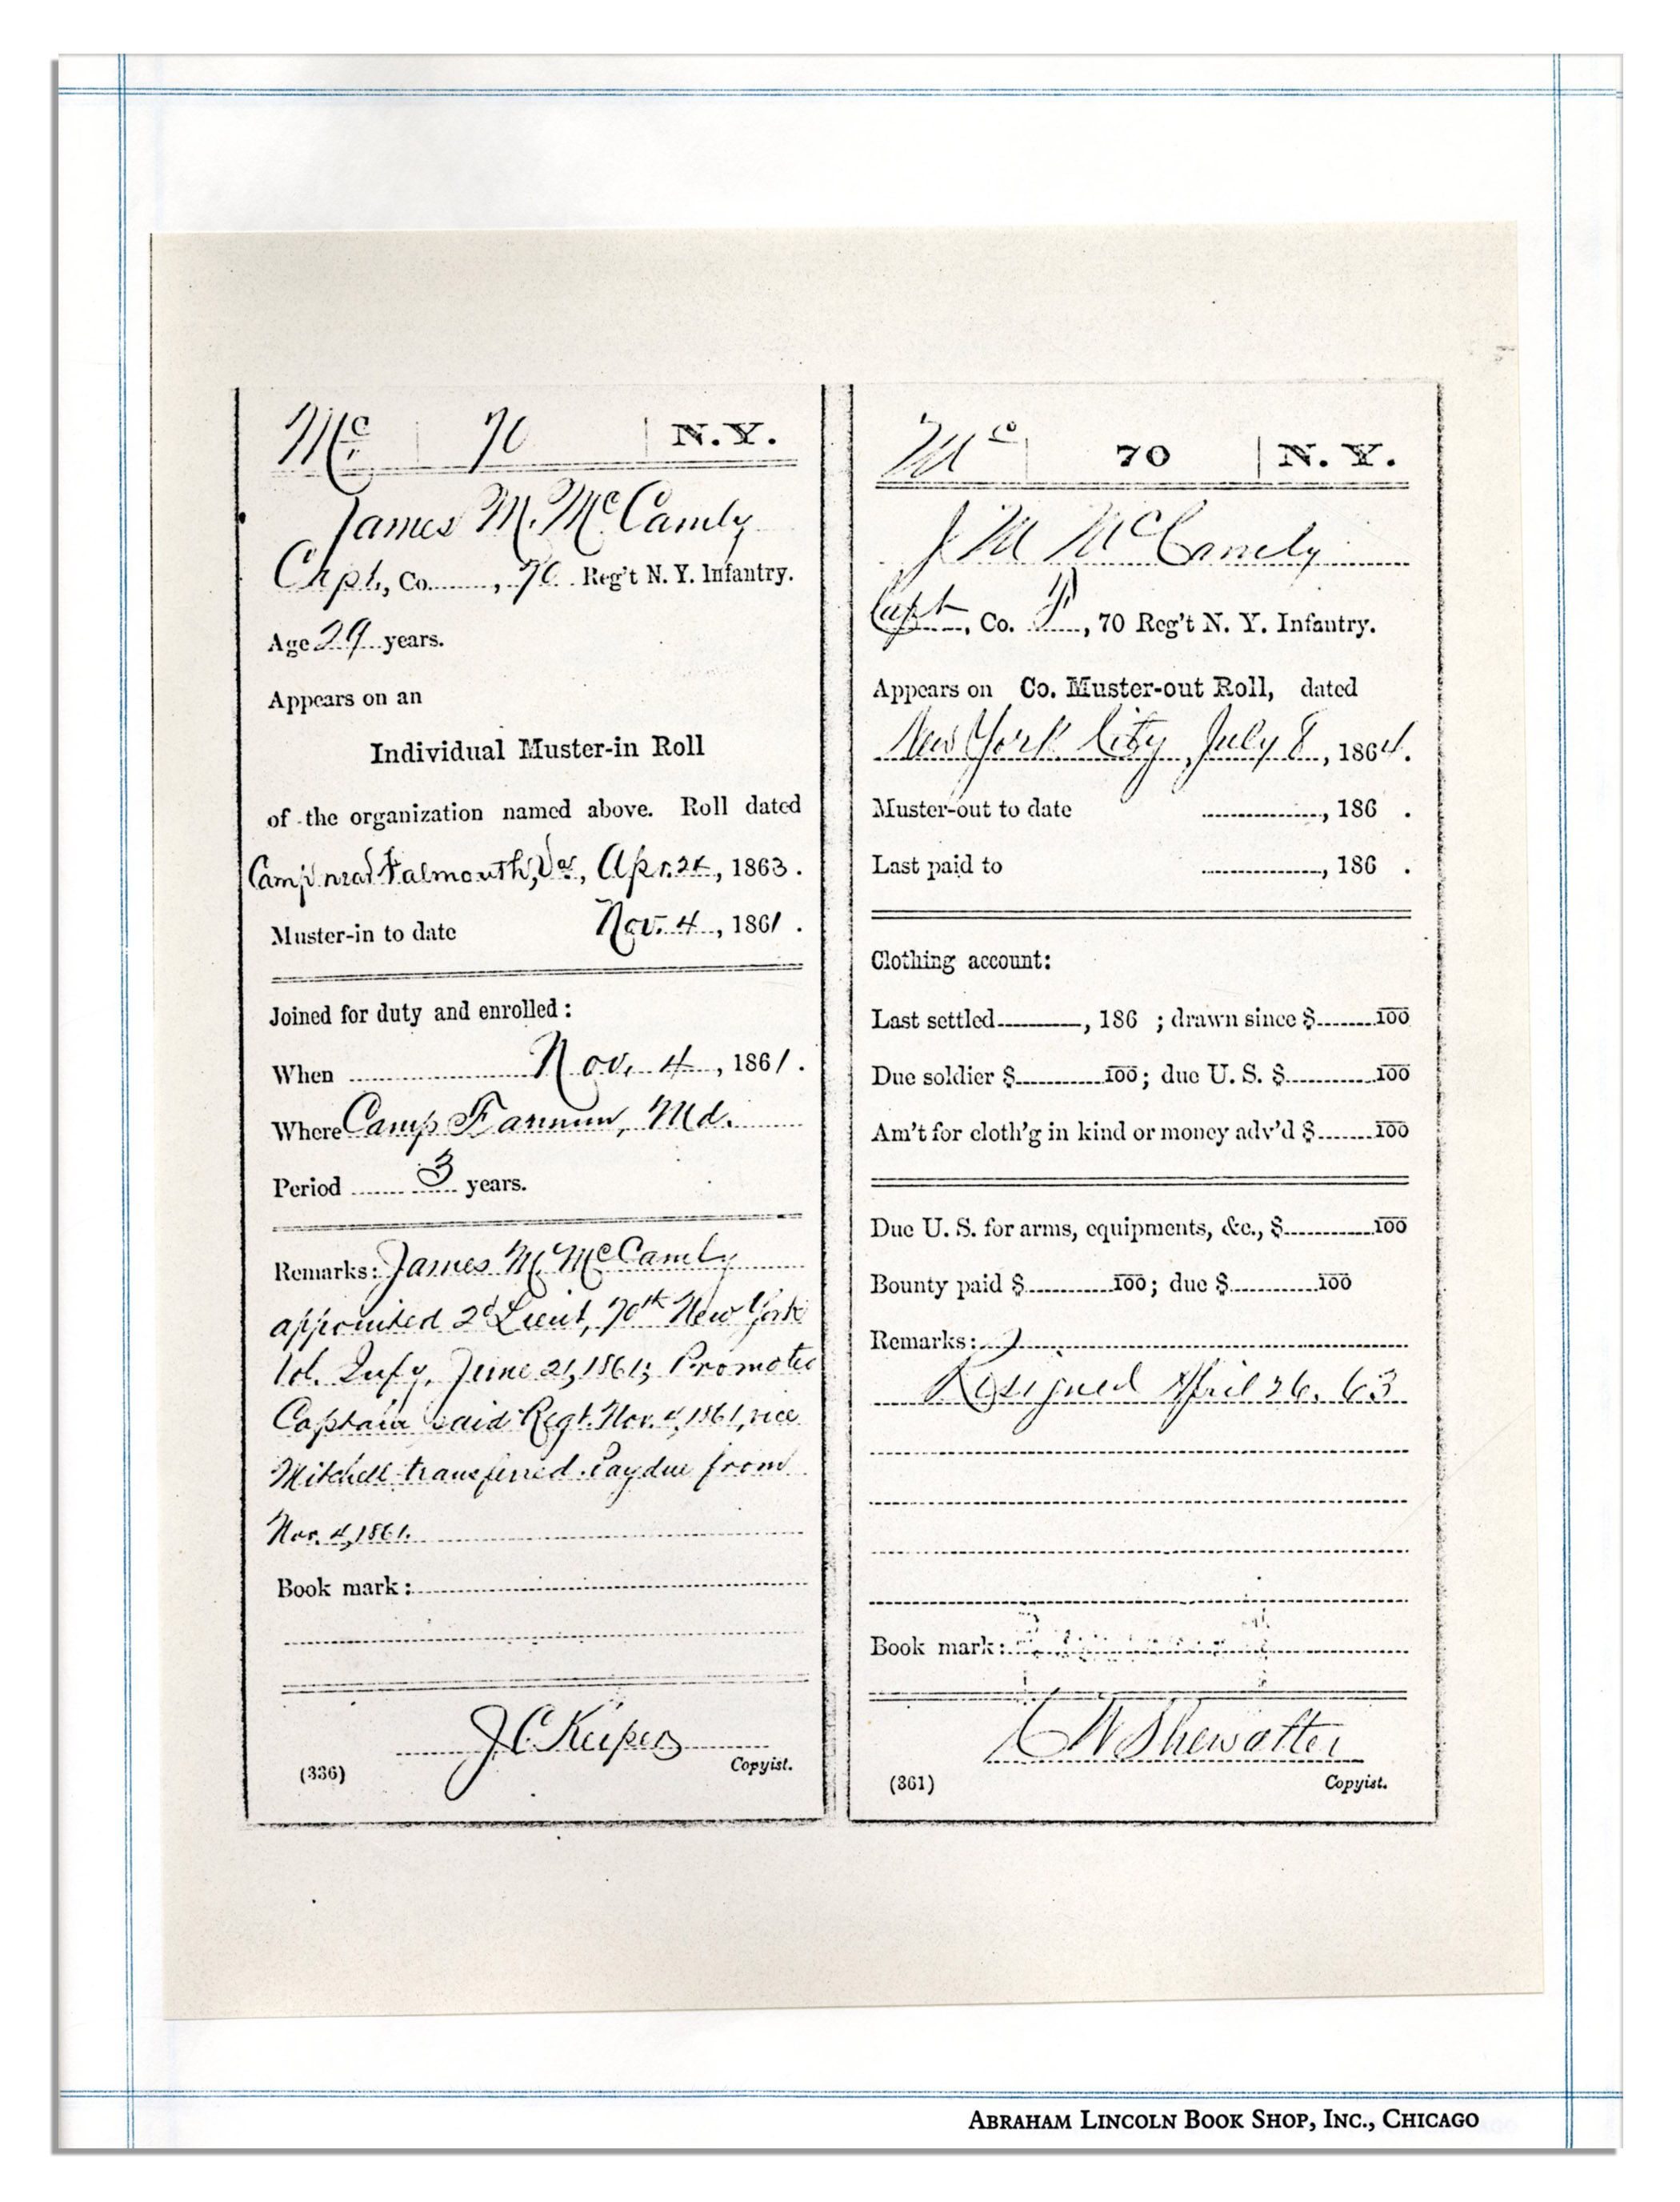 Mc | 70 | N.Y.
James M. McCamly
Capt., Co. ........, 70 Reg't N. Y. Infantry.
Age 29 years.
Appears on an
Individual Muster-in Roll
of the organization named above. Roll dated
Camp near Falmouth, Va., Apr. 24, 1863.
Muster-in to date Nov. 4, 1861.
Joined for duty and enrolled:
When Nov. 4, 1861.
Where Camp Farnum, Md.
Period 3 years.
Remarks: James M. McCamly
appointed 2d Lieut, 70th New York
Vol. Infy, June 21, 1861; Promoted
Captain said Regt. Nov. 4, 1861, vice
Mitchell transferred. Pay due from
Nov. 4, 1861.
Book mark:
J C Keiper
(336) Copyist.
Mc | 70 | N. Y.
J M McCamly
Capt, Co. , 70 Reg't N. Y. Infantry.
Appears on Co. Muster-out Roll, dated
New York City, July 8, 1864.
Muster-out to date ........, 186 .
Last paid to ........, 186 .
Clothing account:
Last settled ........, 186 ; drawn since $........100
Due soldier $........100; due U. S. $........100
Am't for cloth'g in kind or money adv'd $........100
Due U. S. for arms, equipments, &c., $........100
Bounty paid $........100; due $........100
Remarks:
Resigned April 26, 63
Book mark:
C W Shewalter
(361) Copyist.
Abraham Lincoln Book Shop, Inc., Chicago